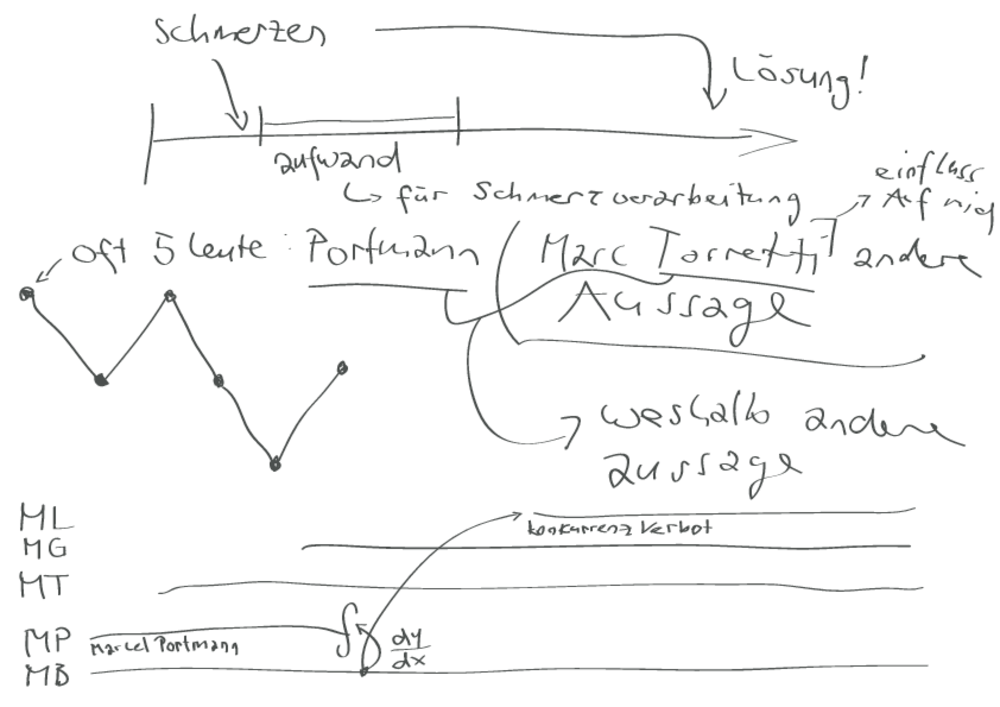 Schmerzen
Lösung!
aufwand
↳ für Schmerzverarbeitung
einfluss
Auf mich
oft 5 leute: Portmann
Marc Torretti andere
Aussage
weshalb andere
aussage
ML
konkurrenz verbot
MG
MT
MP Marcel Portmann
dy
dx
MB